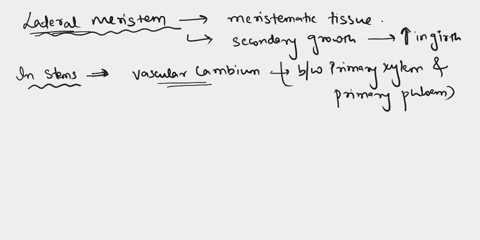 Lateral Meristem → meristematic tissue.
↳ secondary growth → ↑ in girth
In stems ⇒ vascular Cambium → b/w Primary xylem &
primary phloem)